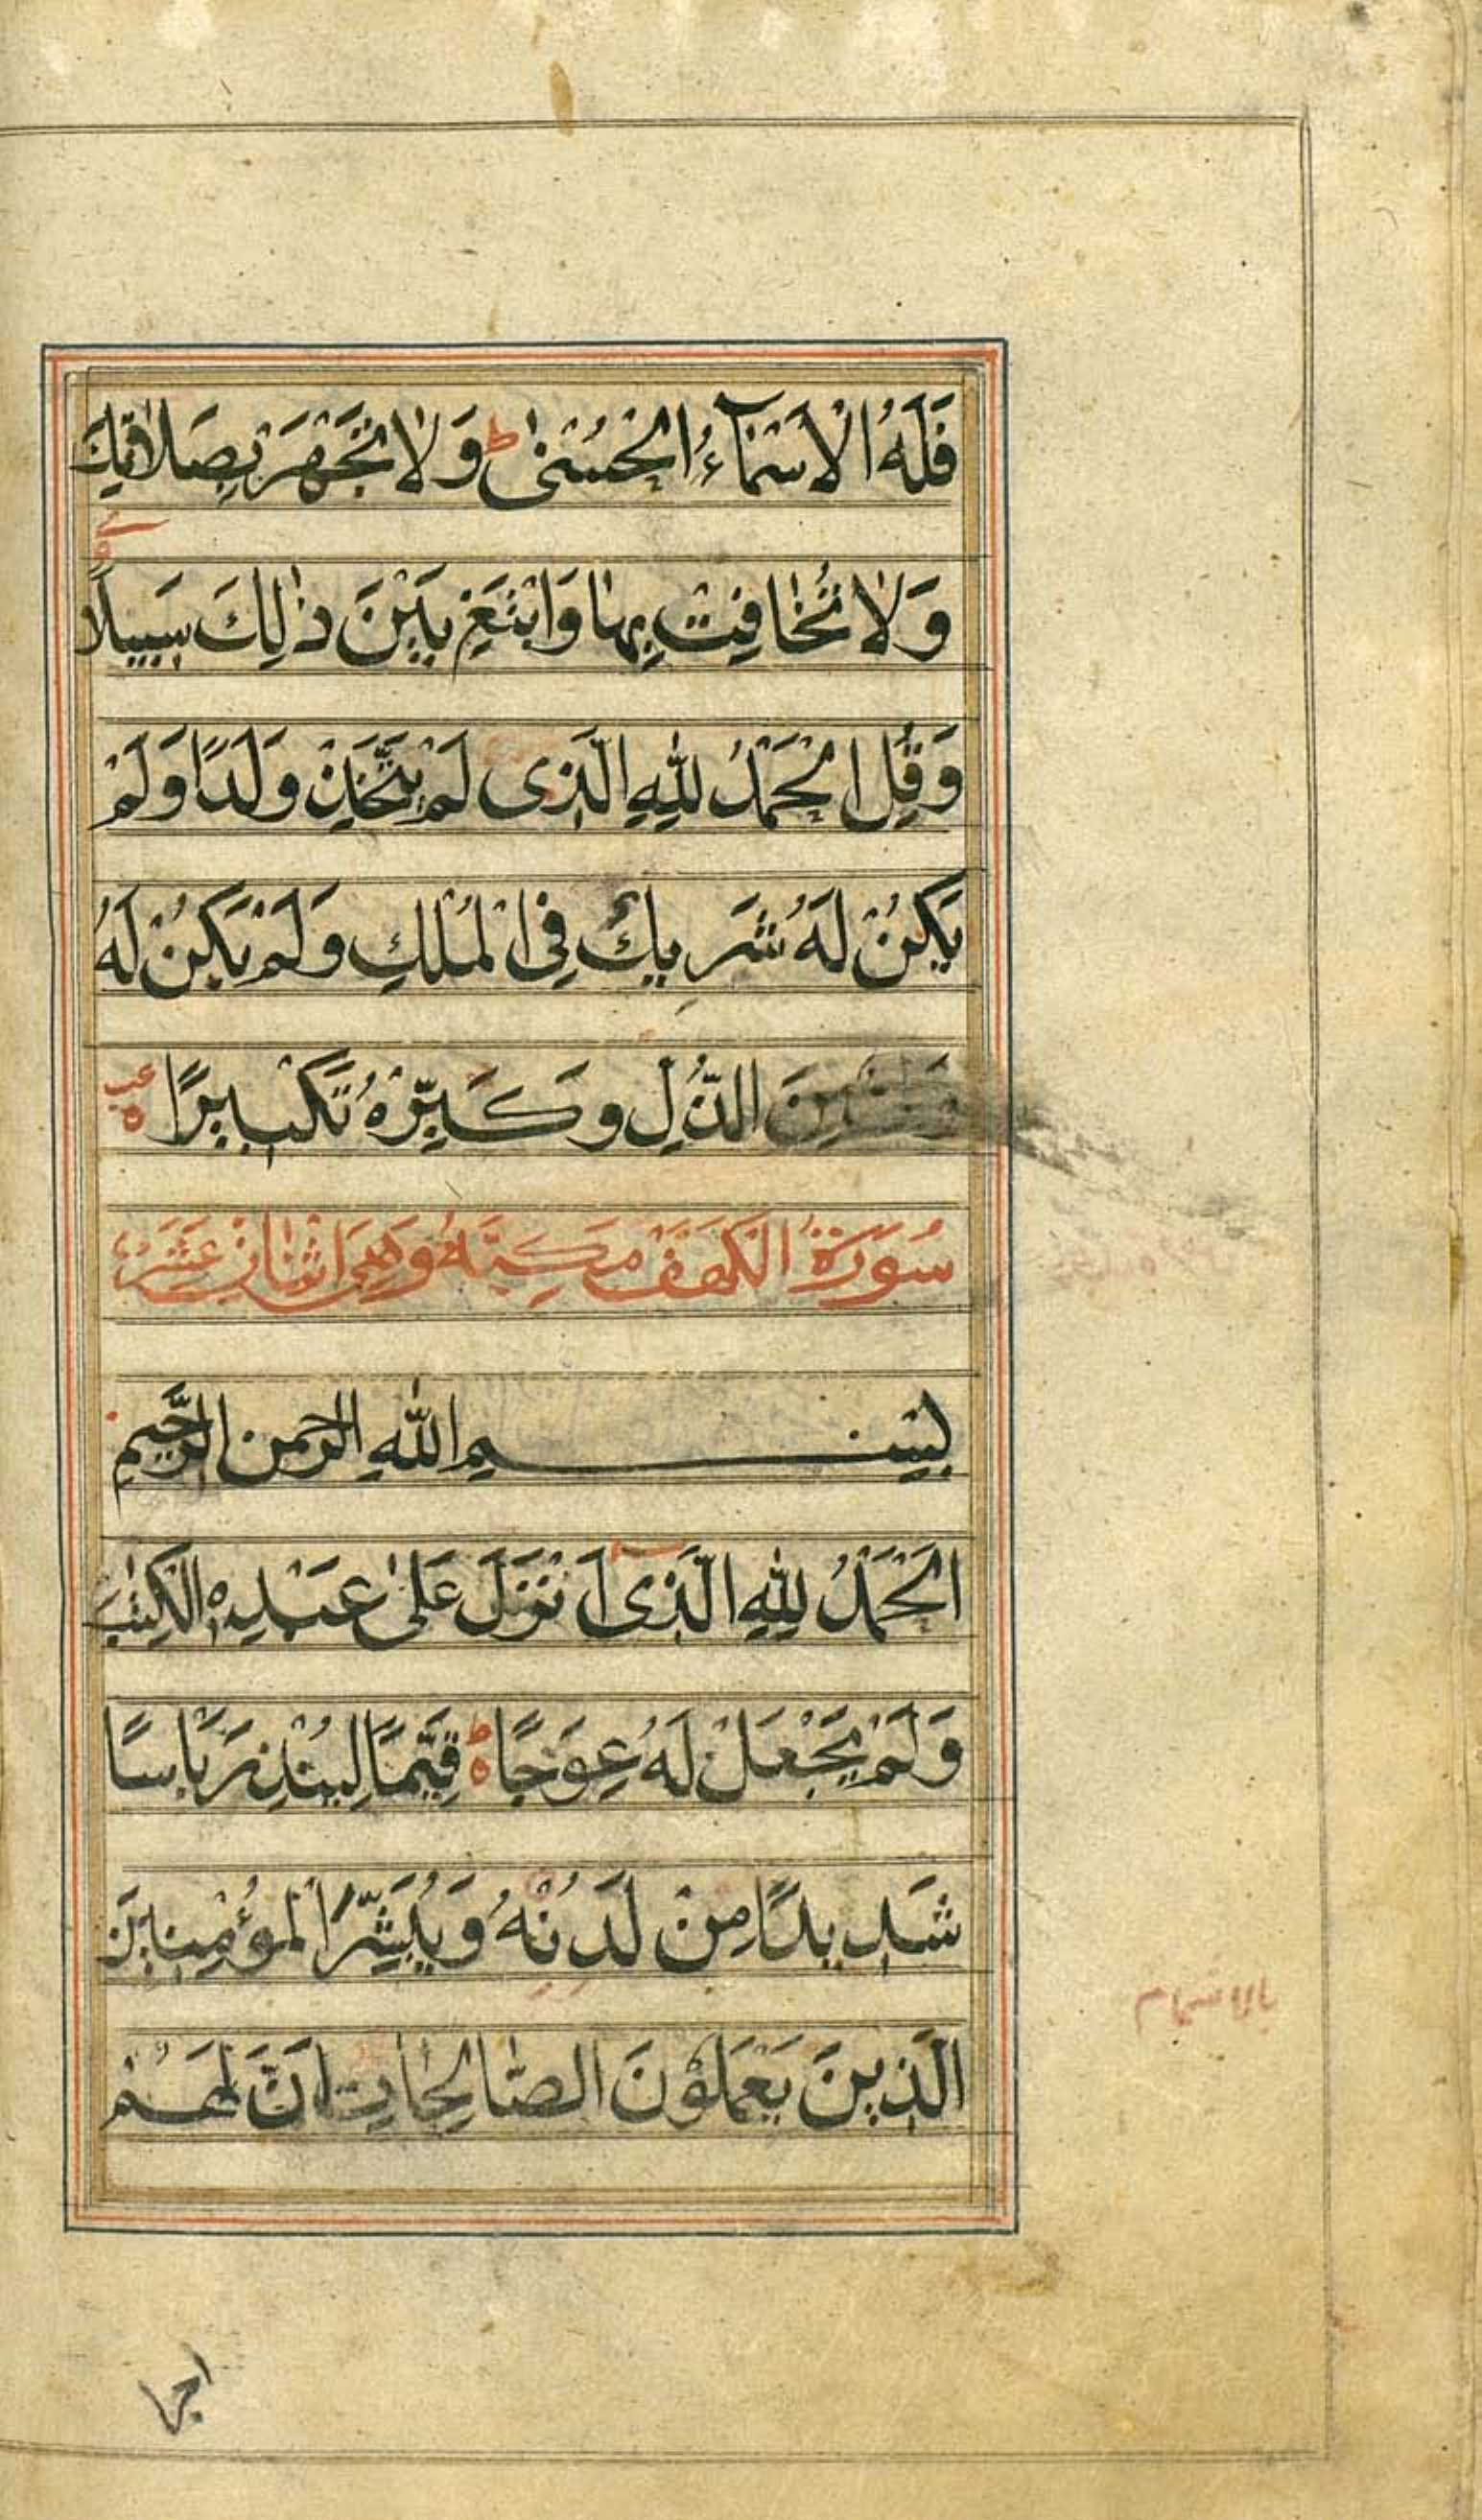 فَلَهُ الْاَسْمَآءُ الْحُسْنٰى ط وَلَا تَجْهَرْ بِصَلَاتِكَ
وَلَا تُخَافِتْ بِهَا وَابْتَغِ بَيْنَ ذٰلِكَ سَبِيلًا
وَقُلِ الْحَمْدُ لِلّٰهِ الَّذِى لَمْ يَتَّخِذْ وَلَدًا وَلَمْ
يَكُنْ لَهُ شَرِيكٌ فِى الْمُلْكِ وَلَمْ يَكُنْ لَهُ
مِنَ الذُّلِ وَكَبِّرْهُ تَكْبِيرًا
سُورَةُ الْكَهَفِ مَكِيَّةٌ وَهِىَ اثْنَانِ عَشَرَ
بِسْمِ اللّٰهِ الرحمن الرَّحِيمِ
اَلْحَمْدُ لِلّٰهِ الَّذِىٓ اَنْزَلَ عَلٰى عَبْدِهِ الْكِتٰبَ
وَلَمْ يَجْعَلْ لَهُ عِوَجًا ط قَيِّمًا لِيُنْذِرَ بَاسًا
شَدِيدًا مِنْ لَدُنْهُ وَيُبَشِّرَ الْمُؤْمِنِينَ
الَّذِينَ يَعْمَلُوْنَ الصَّالِحَاتِ اَنَّ لَهُمْ
اجرا